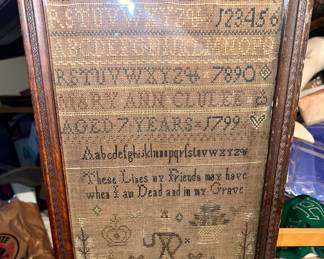 RSTUVWXYZ& 123456
ABCDEFGHIJKLMNOPQ
RSTUVWXYZ& 7890
MARY ANN CLULEE
AGED 7 YEARS 1799
Aabcdefghijklmnopqrſstuvwxyz&
These Lines my Friends may have
when I am Dead and in my Grave